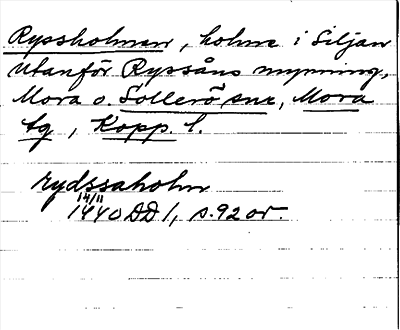 Ryssholmen, holme i Siljan
utanför Ryssåns mynning,
Mora o. Sollerö snr, Mora
tg, Kopp. l.
rydssaholm
14/11
1440 DD 1, s. 92 or.